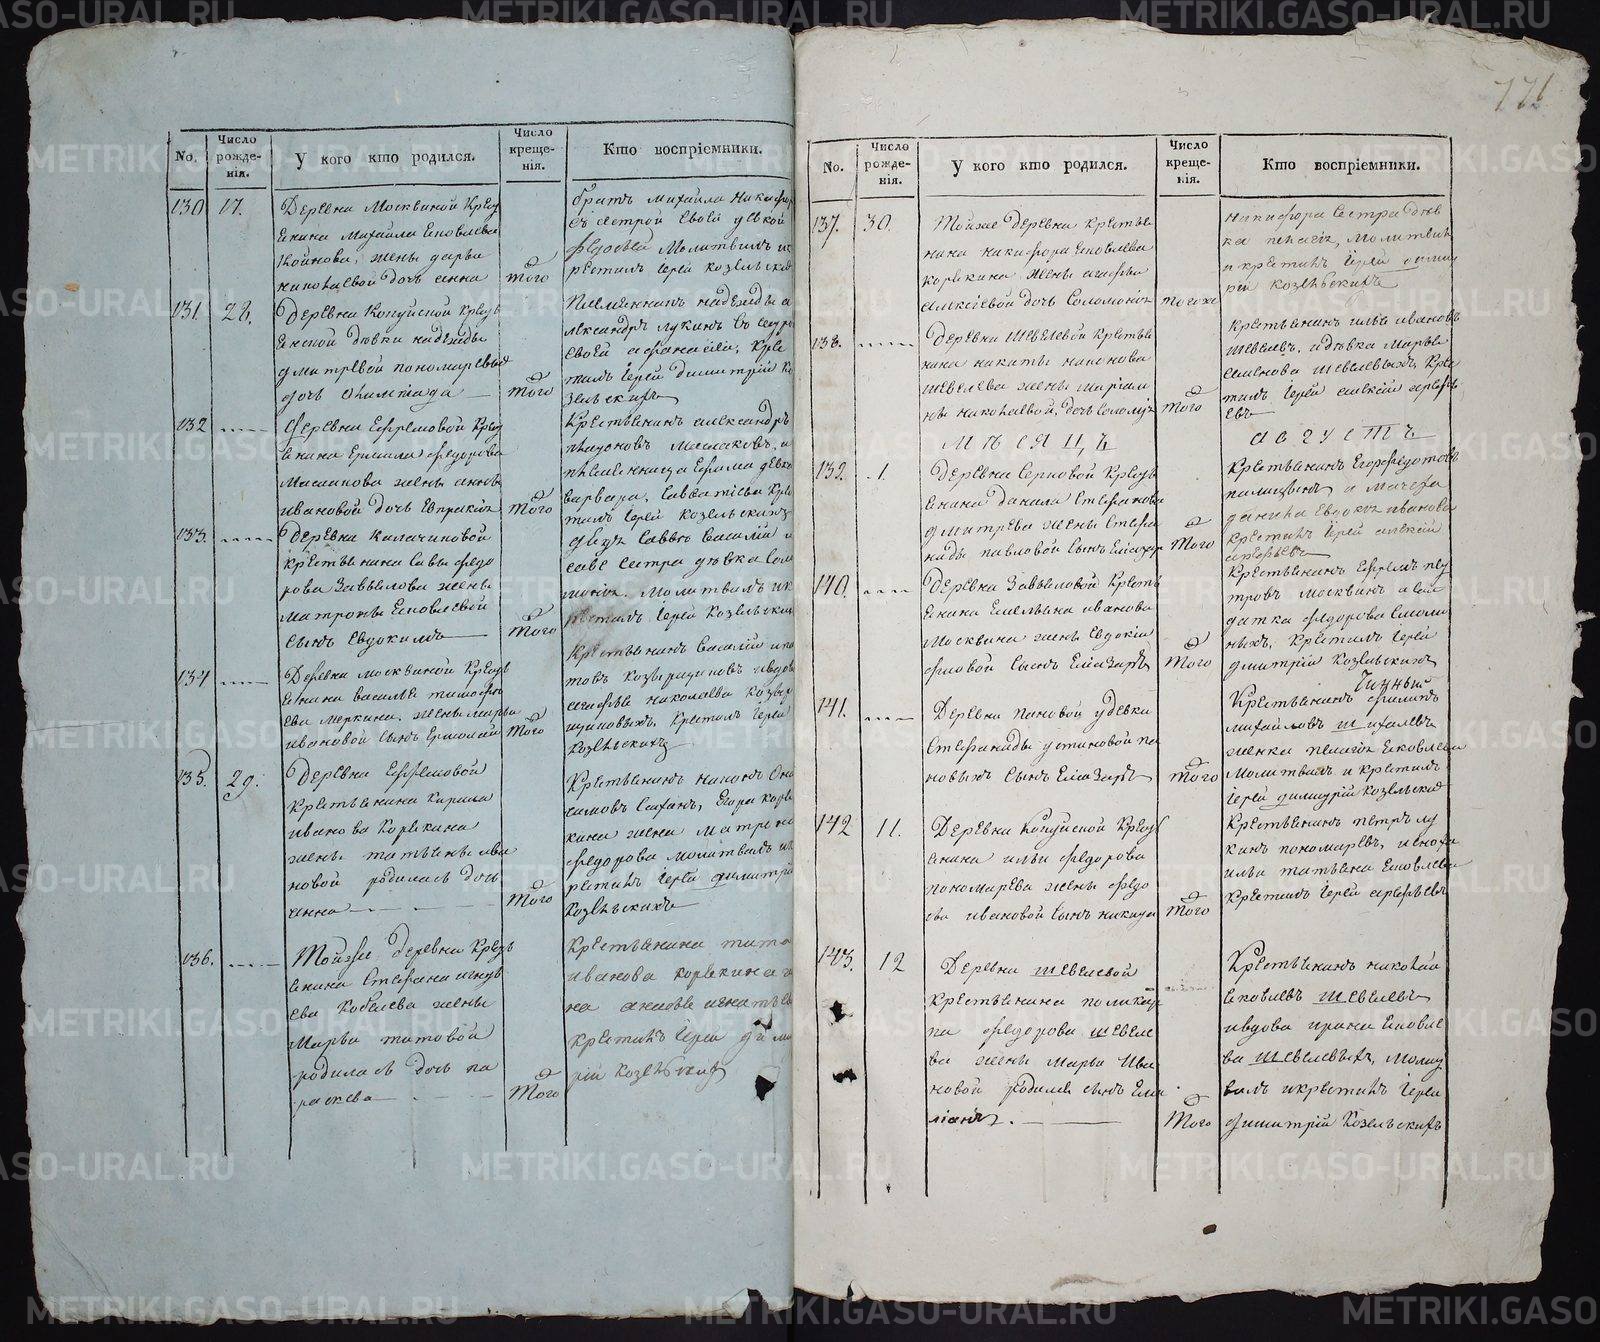 171
No.
Число рожде-нія.
У кого кто родился.
Число креще-нія.
Кто воспріемники.
130
17.
Деревни Москвиной Крест
янина Михайла Яковлева
жены дарьи
дочь анна
того
братъ михаила
съ сестрой своей девкой
молитвилъ и к
рестилъ Іерей козельскій
131
28.
Деревни Копуйской Крест
янской девки надежды
дмитревой пономаревой
дочь Олимпіада
того
Племянникъ надежды а
лександръ лукинъ съ сестрой
своей афанасіей, кре
стилъ Іерей димитрій К
зельскихъ
132
Деревни Ефремовой Крест
янина Ермила федорова
Маслакова жены анны
ивановой дочь Евпраксія
того
Крестьянинъ александръ
Маслаковъ, и
племенница Ермила девка
варвара, Савватіева Кре
стилъ Іерей козельскихъ
133.
Деревни Калачиковой
крестьянина Савы федо
рова Завьялова жены
матроны Яковлевой
сынъ Евдокимъ
того
дядя Саввы василій и
саве сестра девка Соло
монія. Молитвилъ и к
рестилъ Іерей козельскихъ
134
Деревни москвиной Крест
янина василья тимофе
ева меркина, жены марьи
ивановой сынъ Ермолай
того
Крестьянинъ Василій ипа
товъ
агафья николаева
крестилъ Іерей
козельскихъ
135.
29.
Деревни Ефремовой
крестьянина Кирила
иванова Корякина
жены татьяны ива
новой родилась дочь
анна
того
Крестьянинъ
Егора коря
кина жена матрена
федорова молитвилъ и к
рестилъ Іерей димитрій
козельскихъ
136.
Тойже деревни Крест
янина Стефана игнать
ева Кобелева жены
Марьи титовой
родилась дочь па
раскева
того
Крестьянина тита
иванова корякина
на анисья игнатьева
крестилъ Іерей дими
рій козельскихъ
No.
Число рожде-нія.
У кого кто родился.
Число креще-нія.
Кто воспріемники.
137.
30.
Тойже деревни крестья
нина никифора Яковлева
корякина жены агафьи
алексіевой дочь Соломонія
тогоже
никифора сестра дев
ка пелагія, молитвилъ
и крестилъ Іерей дими
рій козельскихъ
138.
Деревни Шевелевой крестья
нина никиты наконова
шевелева жены маріам
ны николаевой, дочь Соломія
того
крестьянинъ илья ивановъ
шевелевъ, и девка марья
семенова шевелевыхъ, кре
стилъ Іерей алексій арефь
евъ
М Ѣ С Я Ц Ъ
а в г у с т ъ
139.
1.
Деревни Серковой Крест
янина данила Стефанова
дмитрева жены Степа
ниды павловой сынъ Елеазаръ
того
крестьянинъ Егоръ федотовъ
палицынъ и мачеха
данила Евдокія иванова
крестилъ Іерей алексій
арефьевъ
140.
Деревни Завьяловой Кресть
янина Емельяна иванова
Москвина жены Евдокіи
фроловой сынъ Елиазаръ
того
крестьянинъ Ефремъ пе
тровъ москвинъ
федорова
крестилъ Іерей
дмитрій козельскихъ
141.
Деревни пановой у девки
Стефаниды устиновой па
новыхъ сынъ Елиазаръ
того
Крестьянинъ филипъ
михайловъ шихалевъ
женка пелагія яковлева
молитвилъ и крестилъ
Іерей димитрій козельскихъ
142
11.
Деревни Копуйской Крест
янина ильи федорова
пономарева жены федо
сьи ивановой сынъ никита
того
крестьянинъ петръ лу
кинъ пономаревъ, и сноха
ильи татьяна Яковлева
крестилъ Іерей арефьевъ
143.
12
Деревни шевелевой
крестьянина поликар
па федорова шевеле
ва жены марьи ива
новой родился сынъ Еми
ліанъ.
того
Крестьянинъ николай
яковлевъ шевелевъ
и вдова ирина яковле
ва шевелевыхъ, молит
вилъ и крестилъ Іерей
димитрій козельскихъ
METRIKI.GASO-URAL.RU